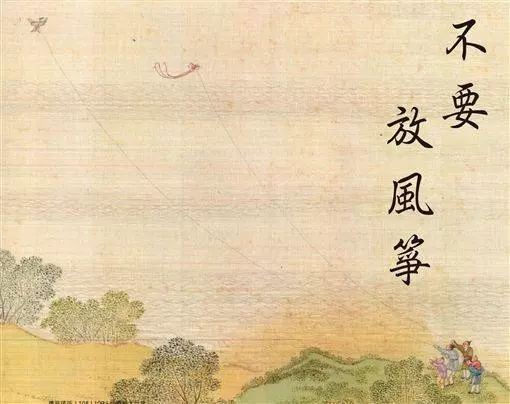 不要
放風箏